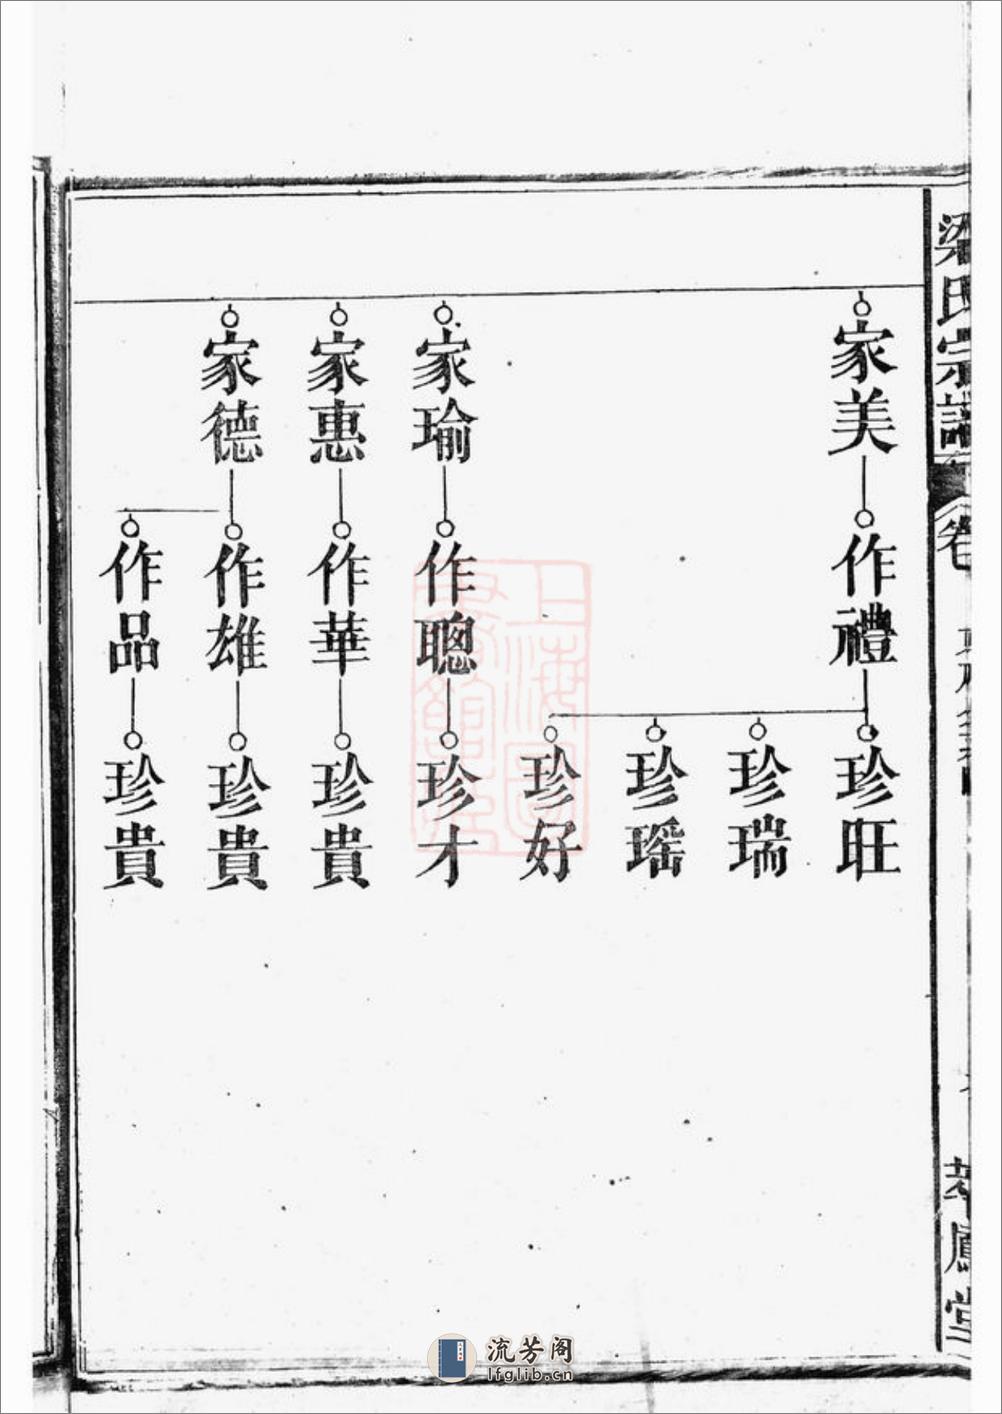 梁氏宗譜
卷
萃鳳堂
家美
作禮
珍旺
珍瑞
珍瑶
珍好
家瑜
作聰
珍才
家惠
作華
珍貴
家德
作雄
珍貴
作品
珍貴
上海圖
書館藏
流芳阁
lfglib.cn